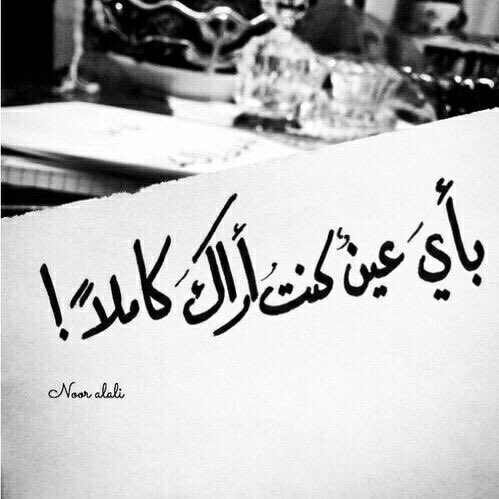 بأيَ عينٌ كنتُ أراكَ كاملاً !
Noor alali